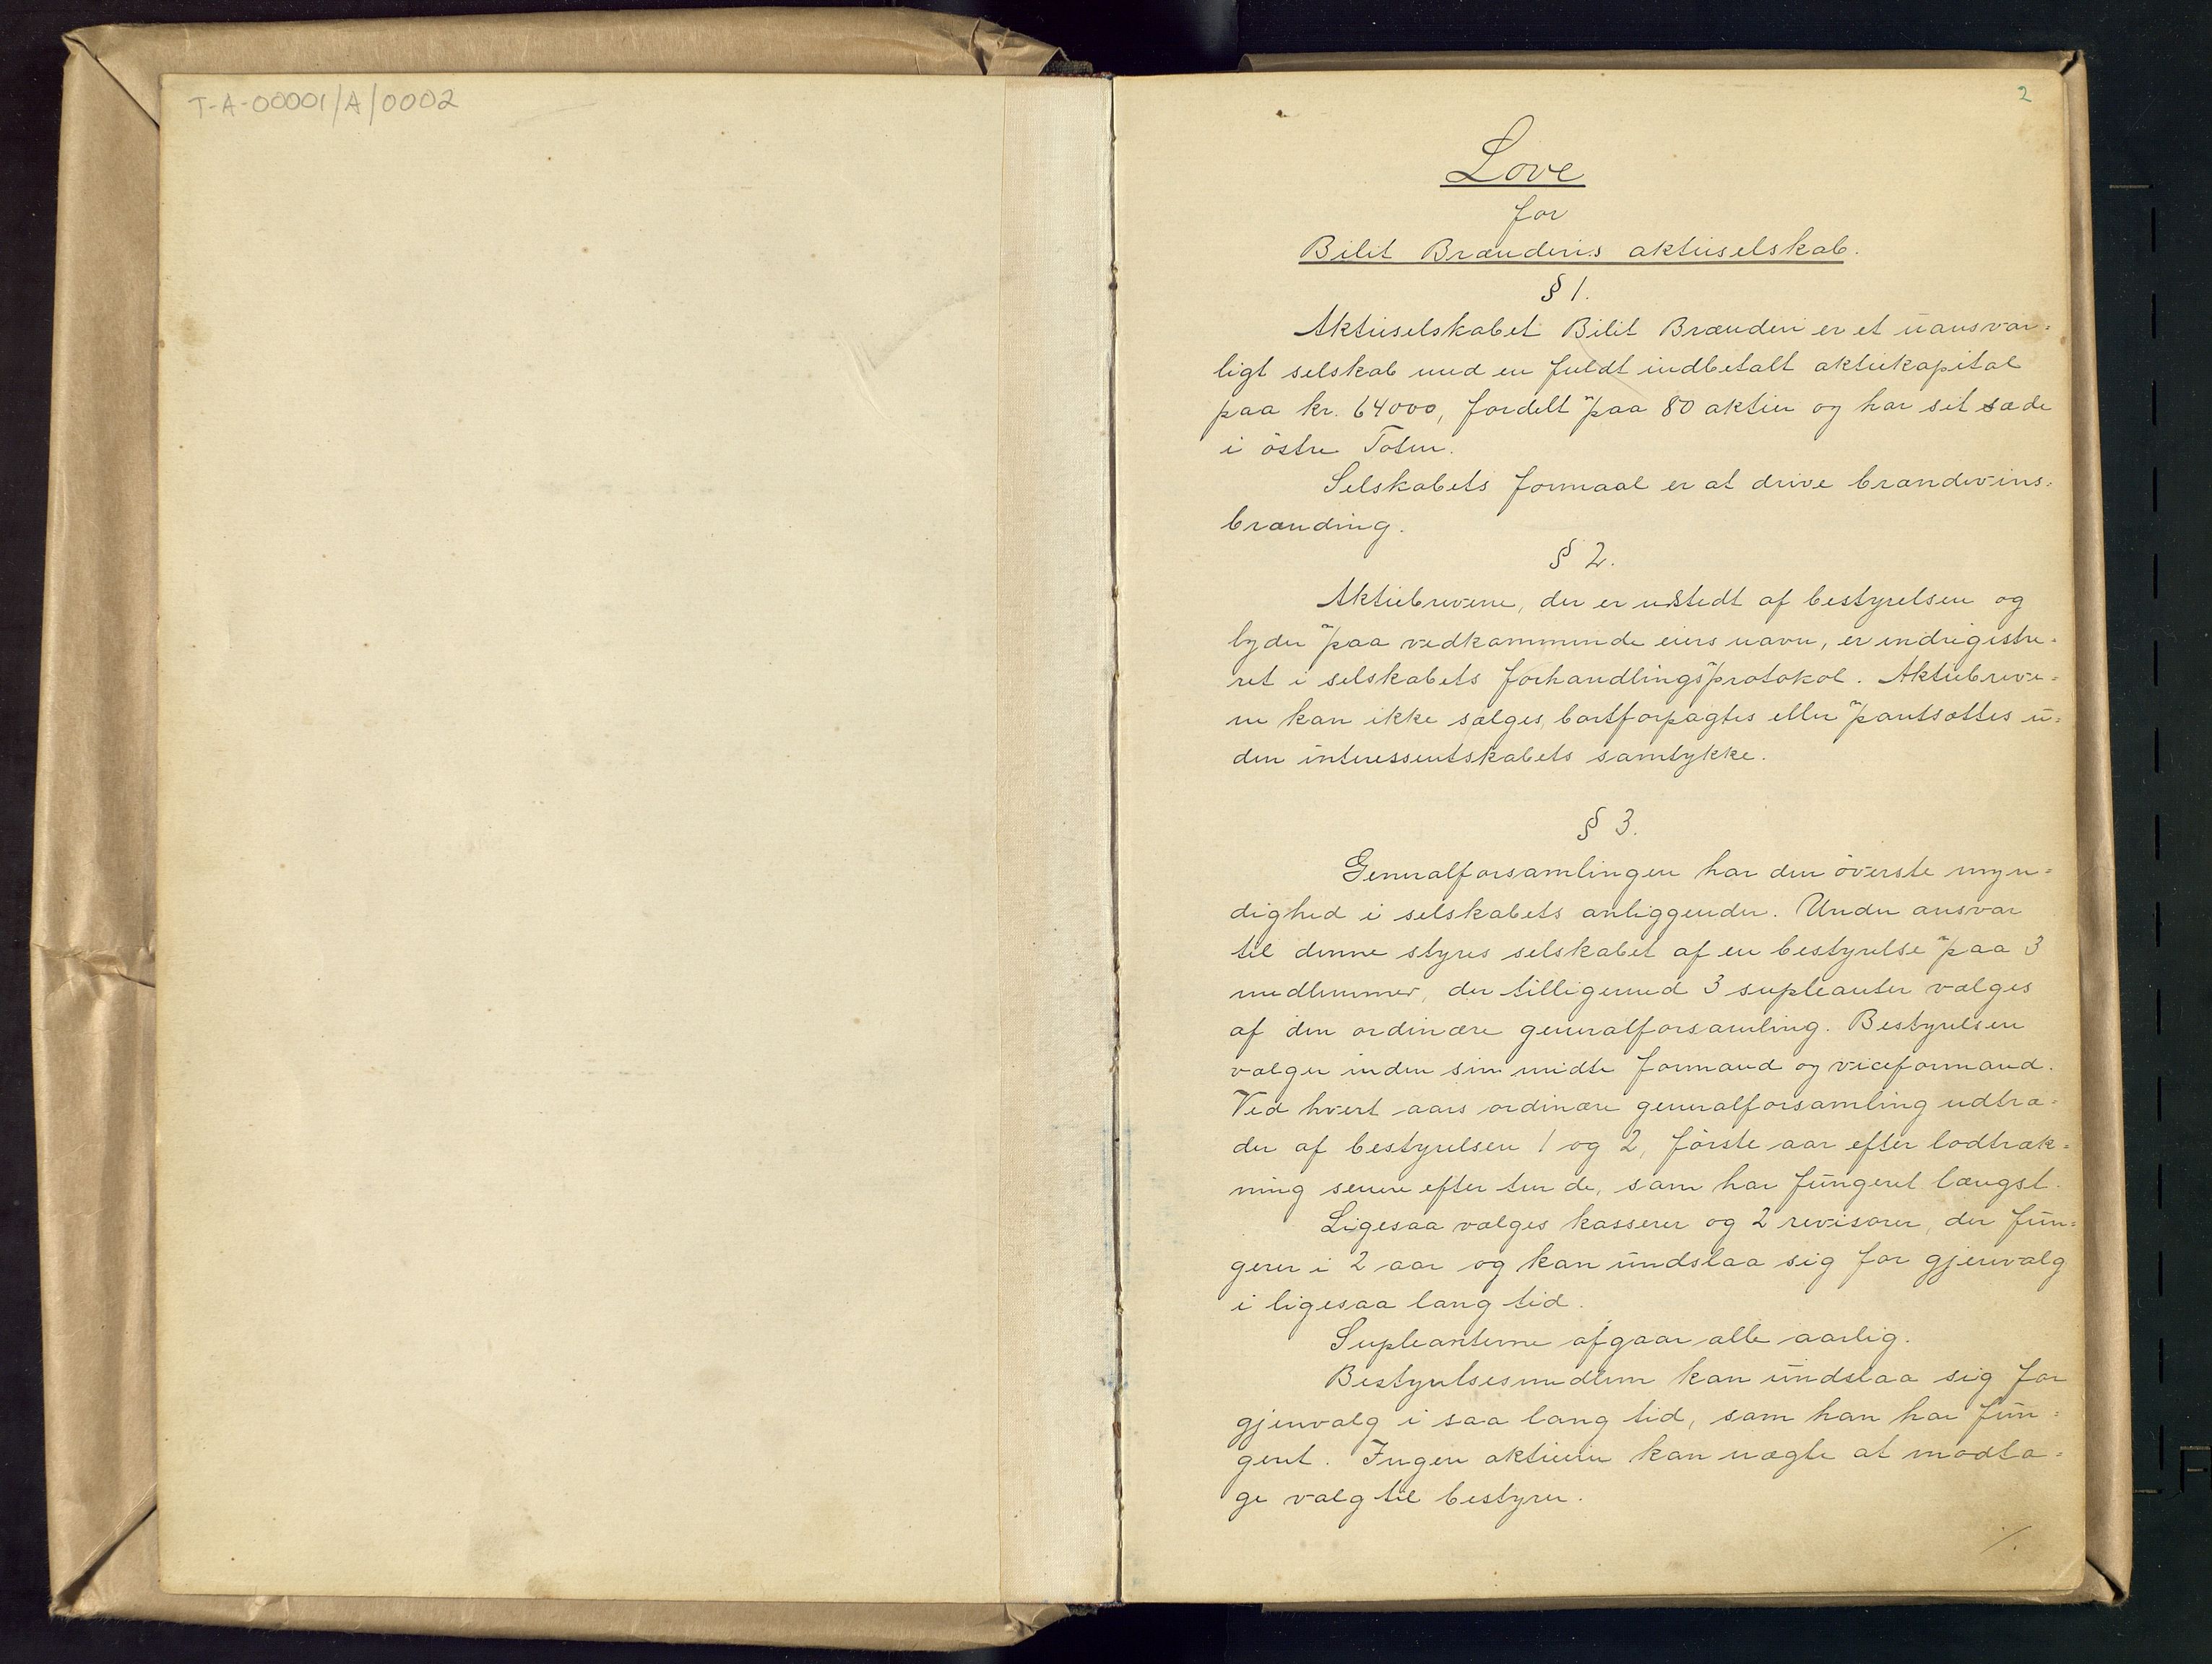 T-A-00001/A/0002
2
Love
for
Bilit Brænderis aktieselskab.
§ 1.
Aktieselskabet Bilit Brænderi er et uansvar=
ligt selskab med en fuldt indbetalt aktiekapital
paa kr. 64000, fordelt paa 80 aktier og har sit sæde
i östre Toten.
Selskabets formaal er at drive brændevins=
brænding.
§ 2.
Aktiebrevene, der er udstedt af bestyrelsen og
lyder paa vedkommende eiers navn, er indregistre=
ret i selskabets forhandlingsprotokol. Aktiebreve=
ne kan ikke sælges, bortforpagtes eller pantsættes u=
den interessentskabets samtykke.
§ 3.
Generalforsamlingen har den överste myn=
dighed i selskabets anliggender. Under ansvar
til denne styres selskabet af en bestyrelse paa 3
medlemmer, der tilligemed 3 supleanter vælges
af den ordinære generalforsamling. Bestyrelsen
vælger inden sin midte formand og viceformand.
Ved hvert aars ordinære generalforsamling udtræ=
der af bestyrelsen 1 og 2, förste aar efter lodtræk=
ning senere efter tur de, som har fungeret længst.
Ligesaa vælges kasserer og 2 revisorer, der fun=
gerer i 2 aar og kan undslaa sig for gjenvalg
i ligesaa lang tid.
Supleanterne afgaar alle aarlig.
Bestyrelsesmedlem kan undslaa sig for
gjenvalg i saa lang tid, som han har fun=
geret. Ingen aktieeier kan nægte at modta=
ge valg til bestyrer.
/.